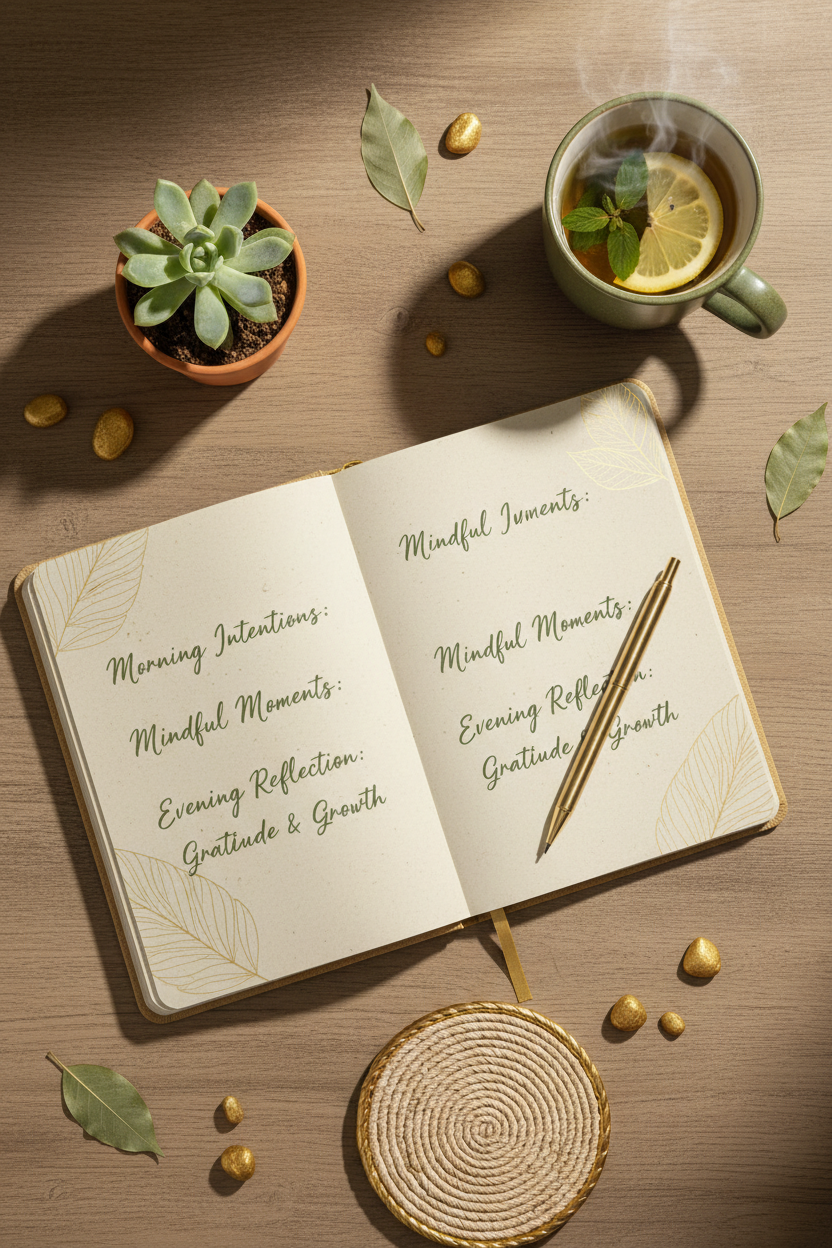 Morning Intentions:
Mindful Moments:
Evening Reflection:
Gratiude & Growth
Mindful Juments:
Mindful Moments:
Evening Reflen:
Gratiude & Growth